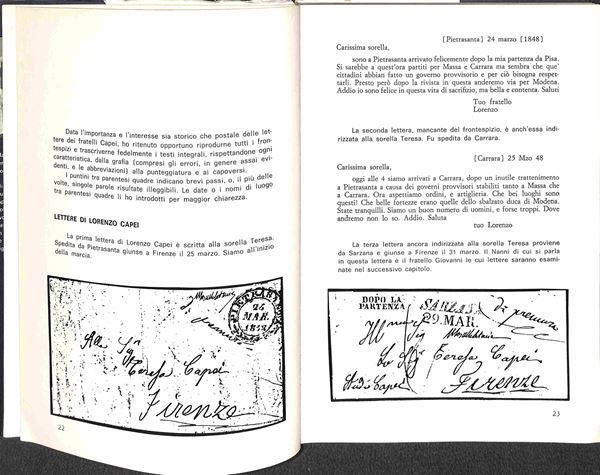 Data l'importanza e l'interesse sia storico che postale delle let-
tere dei fratelli Capei, ho ritenuto opportuno riprodurne tutti i fron-
tespizi e trascriverne fedelmente i testi integrali, rispettandone ogni
caratteristica, dalla grafia (compresi gli errori, in genere assai evi-
denti, e le abbreviazioni) alla punteggiatura e ai capoversi.
I puntini tra parentesi quadre indicano brevi passi, o, il più delle
volte, singole parole risultate illeggibili. Le date o i nomi di luogo
tra parentesi quadre li ho introdotti per maggior chiarezza.
LETTERE DI LORENZO CAPEI
La prima lettera di Lorenzo Capei è scritta alla sorella Teresa.
Spedita da Pietrasanta giunse a Firenze il 25 marzo. Siamo all'inizio
della marcia.
24
MAR.
Alla Sig
Teresa Capei
Firenze
22
[Pietrasanta] 24 marzo [1848]
Carissima sorella,
sono a Pietrasanta arrivato felicemente dopo la mia partenza da Pisa.
Si sarebbe a quest'ora partiti per Massa e Carrara ma sembra che que'
cittadini abbian fatto un governo provvisorio e per ciò bisogna respet-
tarli. Presto però dopo la rivista in questa anderemo via per Modena.
Addio io sono felice in questa vita di sacrifizio, ma bella e contenta. Saluti
Tuo fratello
Lorenzo
La seconda lettera, mancante del frontespizio, è anch'essa indi-
rizzata alla sorella Teresa. Fu spedita da Carrara.
[Carrara] 25 Mzo 48
Carissima sorella,
oggi alle 4 siamo arrivati a Carrara, dopo un inutile trattenimento
a Pietrasanta a causa dei governi provvisori stabiliti tanto a Massa che
a Carrara. Ora aspettiamo ordini, e artiglieria. Che bei luoghi sono
questi! Che belle fortezze erano quelle dello sbalzato duca di Modena.
State tranquilli. Siamo un buon numero di uomini, e forse troppi. Dove
andremo non lo so. Addio. Saluta
tuo Lorenzo
La terza lettera ancora indirizzata alla sorella Teresa proviene
da Sarzana e giunse a Firenze il 31 marzo. Il Nanni di cui si parla
in questa lettera è il fratello Giovanni le cui lettere saranno esami-
nate nel successivo capitolo.
DOPO LA
PARTENZA
29. MAR.
di premura
La Sig
Teresa Capei
Firenze
23